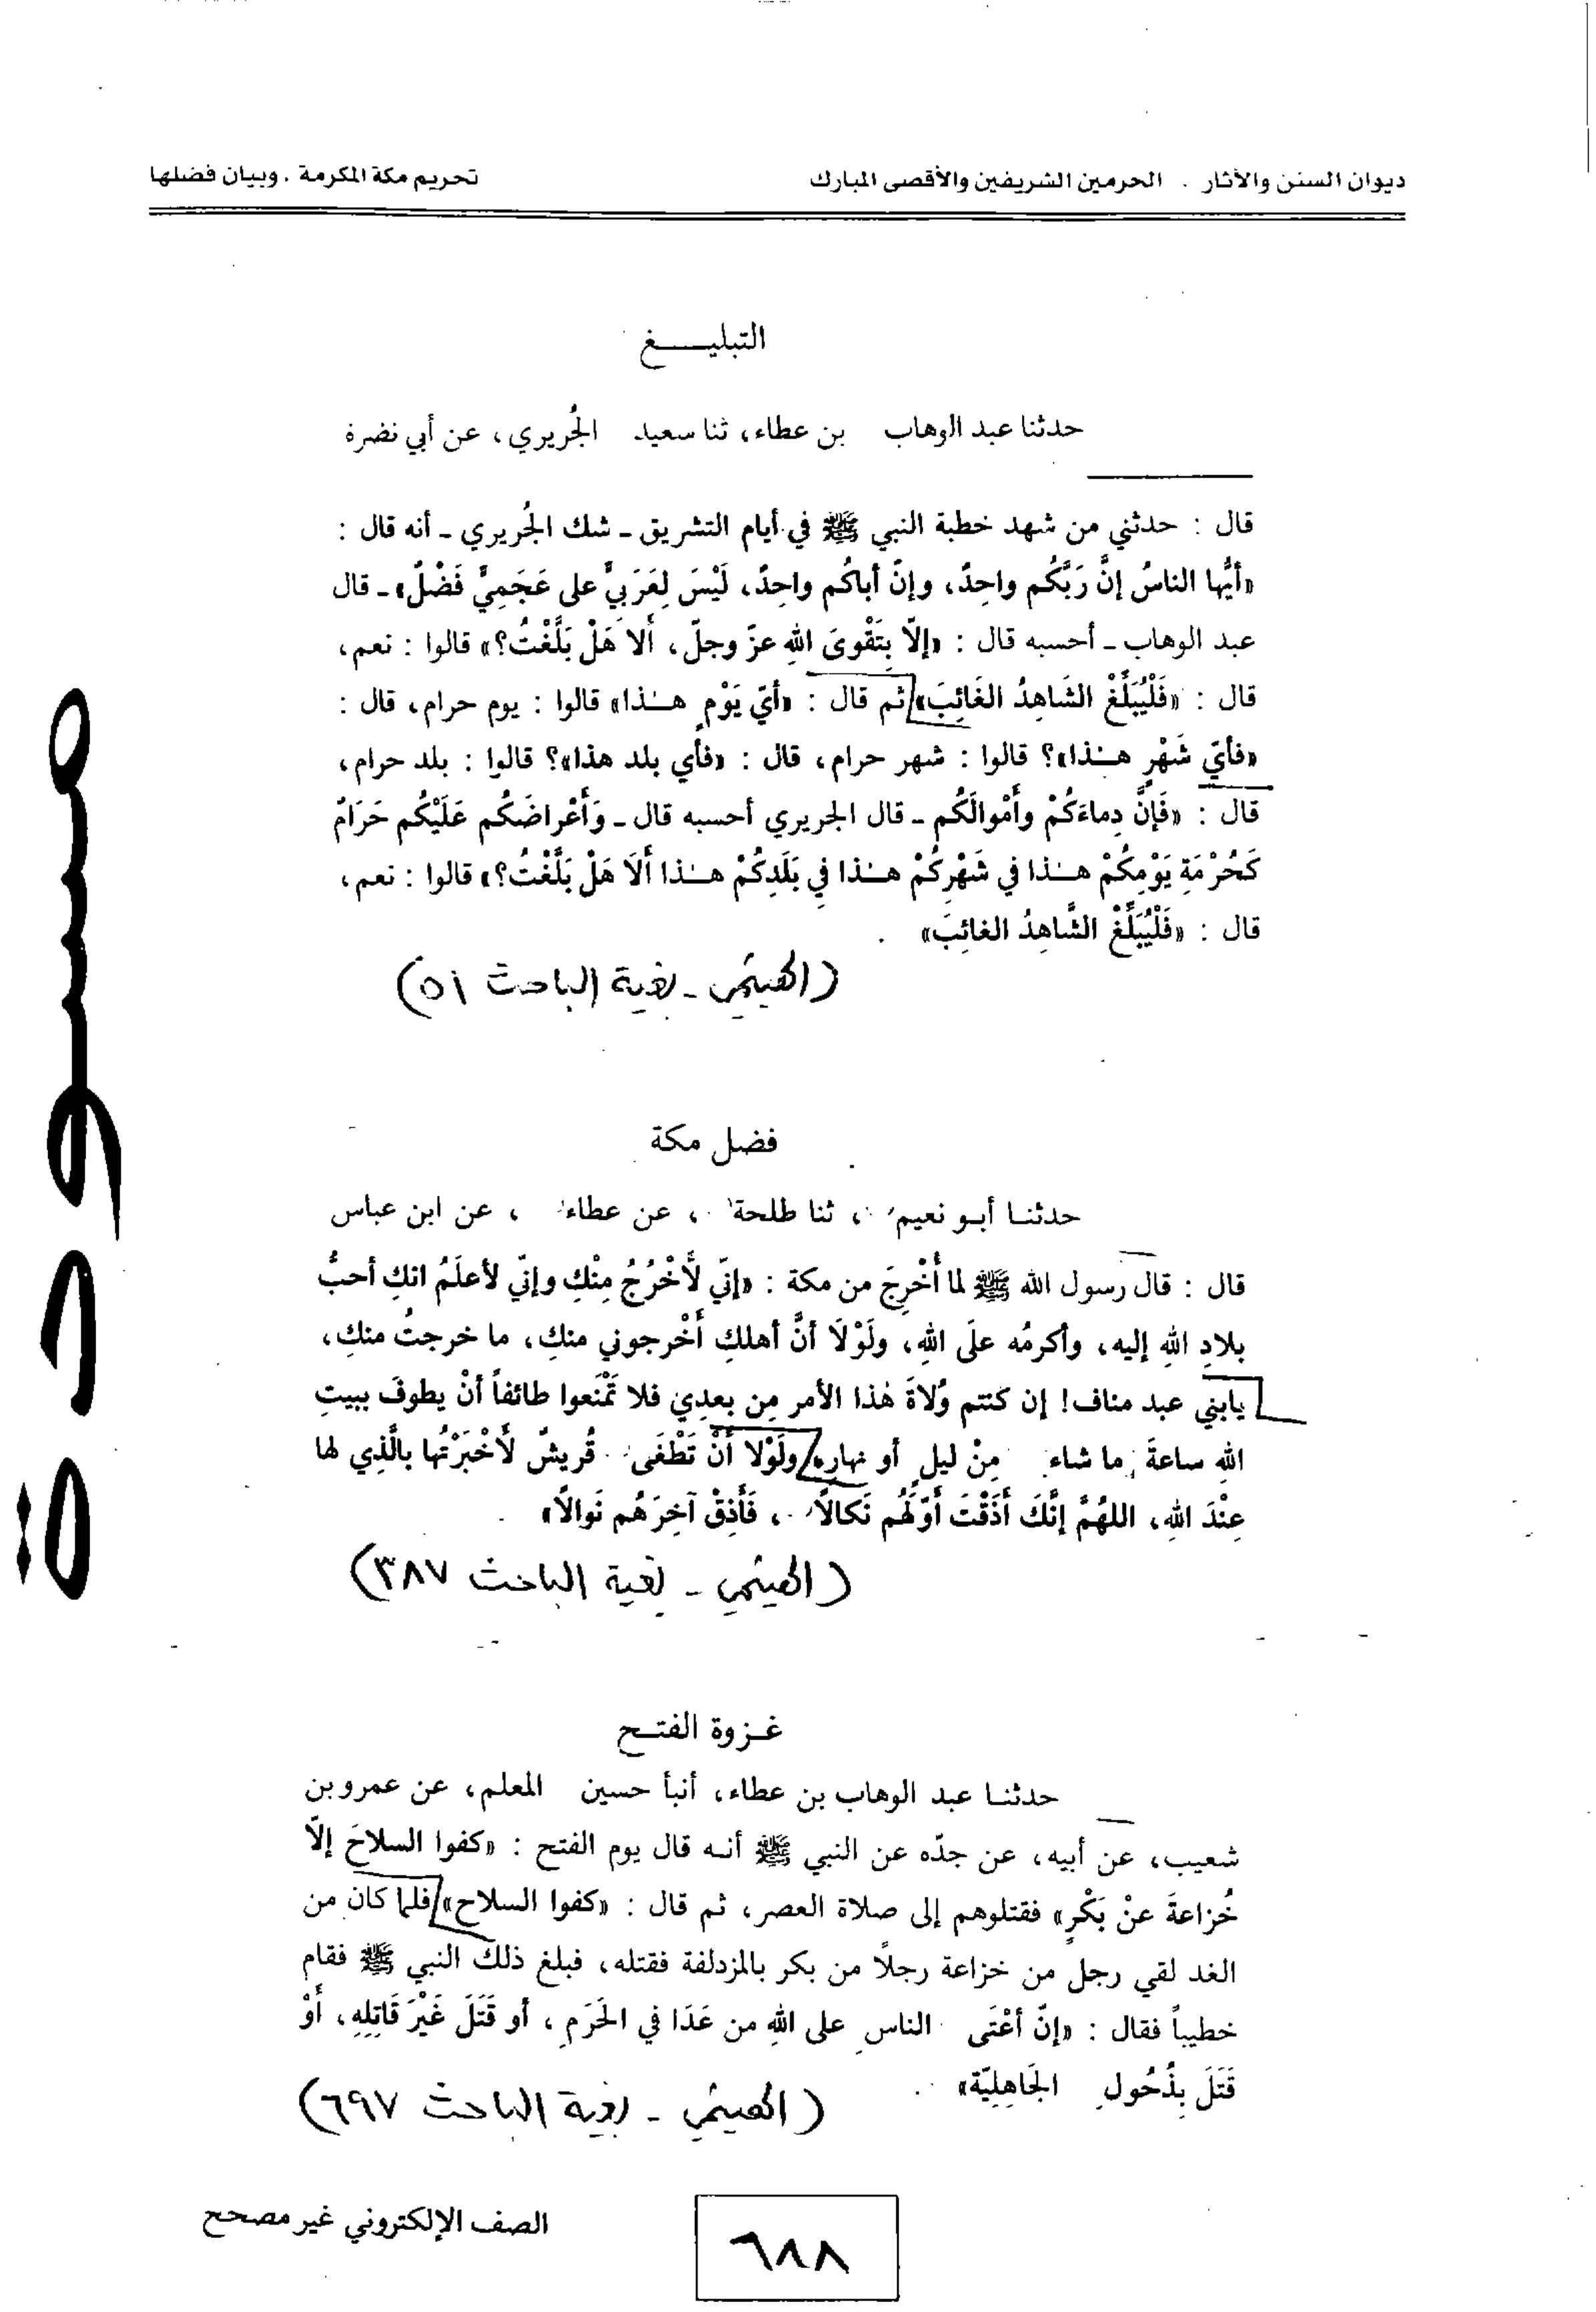 ديوان السنن والآثار . الحرمين الشريفين والأقصى المبارك
تحريم مكة المكرمة . وبيان فضلها
التبليـــــغ
حدثنا عبد الوهاب بن عطاء، ثنا سعيد الجُريري، عن أبي نضرة
قال : حدثني من شهد خطبة النبي ﷺ في أيام التشريق ـ شك الجُريري ـ أنه قال :
«أيُّها الناسُ إنَّ رَبَّكُم واحِدٌ، وإنّ أباكُم واحِدٌ، لَيْسَ لِعَرَبيٍّ على عَجَمِيٍّ فَضْلٌ» ـ قال
عبد الوهاب ـ أحسبه قال : «إلاّ بِتَقْوىَ اللهِ عزّ وجلّ، ألا هَلْ بَلَّغْتُ؟» قالوا : نعم،
قال : «فَلْيُبَلِّغْ الشَاهِدُ الغَائِبَ» ثم قال : «أيّ يَوْمٍ هـٰذا» قالوا : يوم حرام، قال :
«فأيّ شَهْرٍ هـٰذا»؟ قالوا : شهر حرام، قال : «فأي بلد هذا»؟ قالوا : بلد حرام،
قال : «فَإنَّ دِماءَكُمْ وأَمْوالَكُم ـ قال الجريري أحسبه قال ـ وَأَعْراضَكُم عَلَيْكُم حَرَامٌ
كَحُرْمَةِ يَوْمِكُمْ هـٰذا في شَهْرِكُمْ هـٰذا فِي بَلَدِكُمْ هـٰذا أَلَا هَلْ بَلَّغْتُ؟» قالوا : نعم،
قال : «فَلْيُبَلِّغْ الشَّاهِدُ الغائِبَ» .
(الهيثمي - بغية الباحث ٥١)
فضل مكة
حدثنـا أبـو نعيم ، ثنا طلحة ، عن عطاء ، عن ابن عباس
قال : قال رسول الله ﷺ لما أُخْرِجَ من مكة : «إنّي لَأَخْرُجُ مِنْكِ وإنّي لأعلَمُ انكِ أحبُّ
بلادِ اللهِ إليه، وأكرمُه علَى اللهِ، ولَوْلَا أنَّ أهلكِ أخْرجوني منكِ، ما خرجتُ منكِ،
يابني عبد مناف! إن كنتم وُلاةَ هٰذا الأمر مِن بعدِي فلا تَمْنَعوا طائفاً أنْ يطوفَ ببيتِ
اللهِ ساعةَ ما شاء مِنْ ليلٍ أو نهارٍ، ولَوْلا أَنْ تَطْغَى قُريشٌ لَأَخْبَرْتُها بالَّذِي لها
عِنْدَ اللهِ، اللهُمَّ إنَّكَ أَذَقْتَ أَوّلَهُم نَكالاً ، فَأَذِقْ آخِرَهُم نَوالاً»
(الهيثمي - بغية الباحث ٣٨٧)
غـزوة الفتـح
حدثنـا عبد الوهاب بن عطاء، أنبأ حسين المعلم، عن عمرو بن
شعيب، عن أبيه، عن جدّه عن النبي ﷺ أنـه قال يوم الفتح : «كفوا السلاحَ إلاّ
خُزاعةَ عنْ بَكْرٍ» فقتلوهم إلى صلاة العصر، ثم قال : «كفوا السلاح» فلما كان من
الغد لقي رجل من خزاعة رجلاً من بكر بالمزدلفة فقتله، فبلغ ذلك النبي ﷺ فقام
خطيباً فقال : «إنّ أعْتَى الناس على اللهِ من عَدَا في الحَرَمِ ، أو قَتَلَ غَيْرَ قَاتِلِهِ، أوْ
قَتَلَ بِذُحُولِ الجَاهِلِيّة» .
(الهيثمي - بغية الباحث ٦٩٧)
الصف الإلكتروني غير مصحح
٦٨٨
مسودة